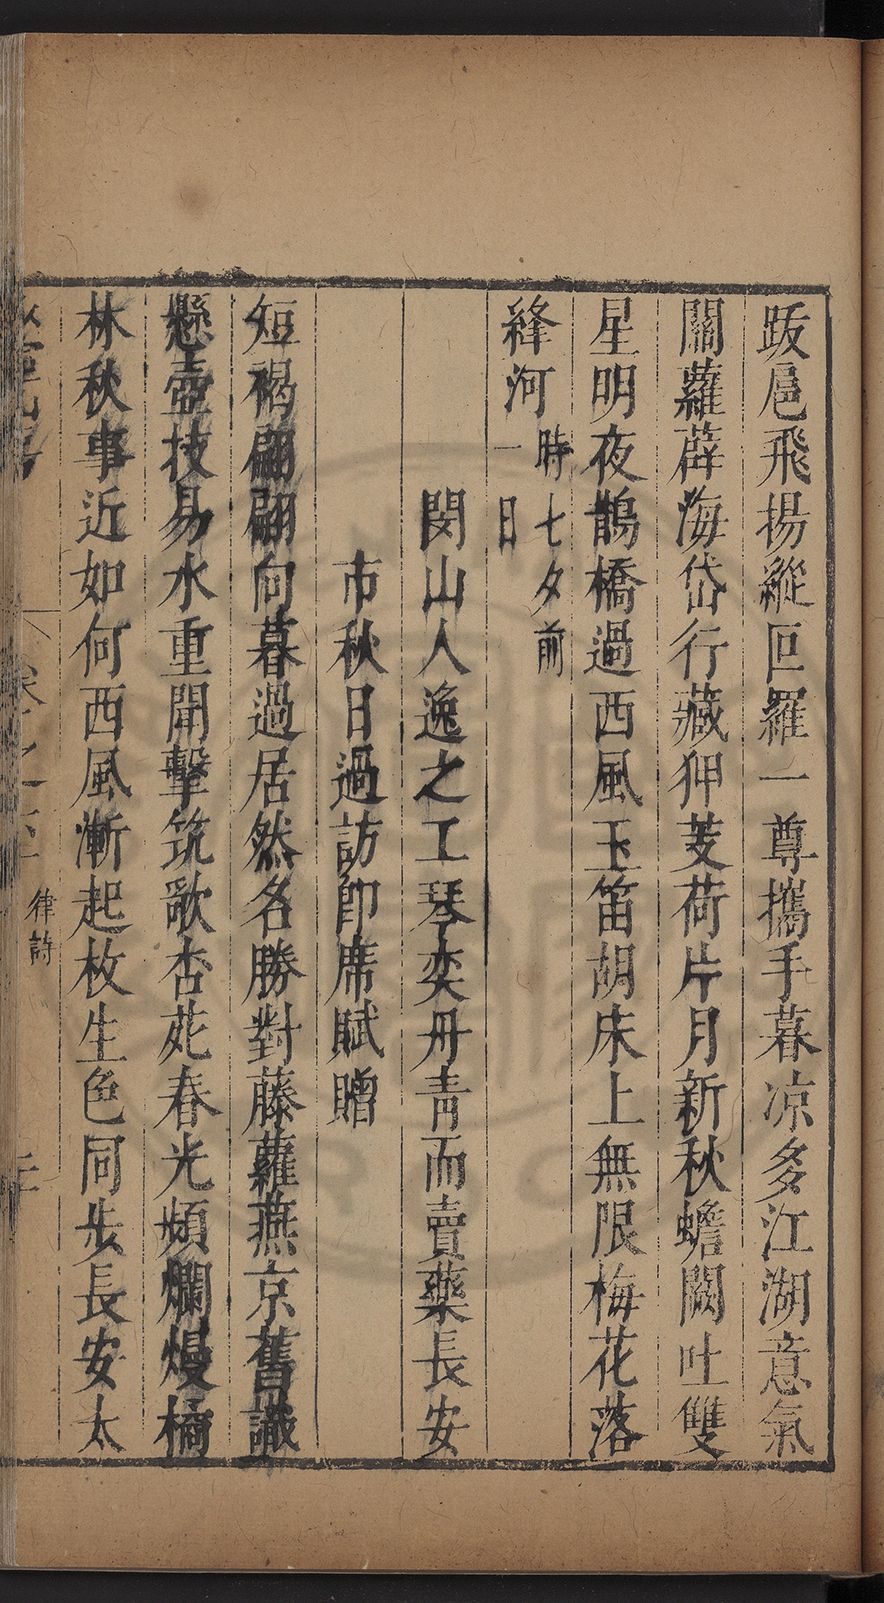 跋扈飛揚縱叵羅一尊攜手暮凉多江湖意氣
關蘿薜海岱行藏狎芰荷片月新秋蟾闕吐雙
星明夜鵲橋過西風玉笛胡床上無限梅花落
絳河時七夕前一日
閔山人逸之工琴奕丹青而賣藥長安
市秋日過訪卽席賦贈
短褐翩翩向暮過居然名勝對藤蘿燕京舊識
懸壺技易水重聞擊筑歌杏苑春光頻爛熳橘
林秋事近如何西風漸起枚生色同步長安太
律詩